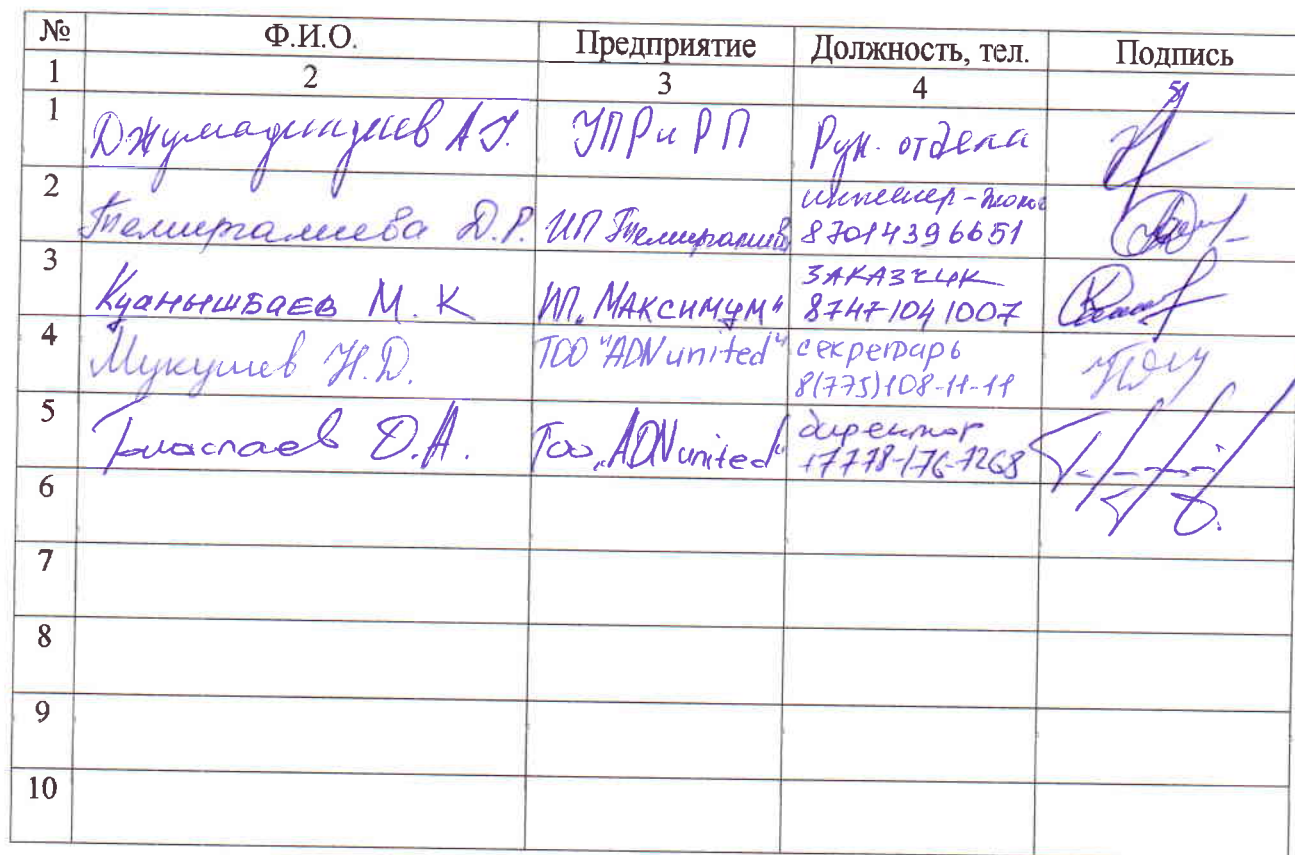 № Ф.И.О. Предприятие Должность, тел. Подпись
1 2 3 4 5
1 А.Г. УПР и РП Рук. отдела
2 Темиргалиева Д.Р. ИП Темиргалиева инженер-эколог
87014396651
3 Куанышбаев М.К ИП „Максимум" заказчик
87471041007
4 Мукушев Н.Д. ТОО "ADN united" секретарь
8(775)108-11-11
5 Д.А. Тоо „ADN united" директор
6
7
8
9
10